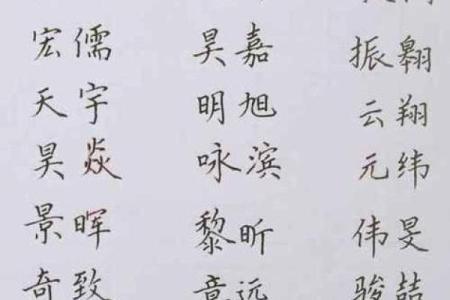 宏儒 昊嘉 振翱
天宇 明旭 云翔
昊焱 咏滨 元纬
景晖 黎昕 伟旻
奇致 意远 骏喆